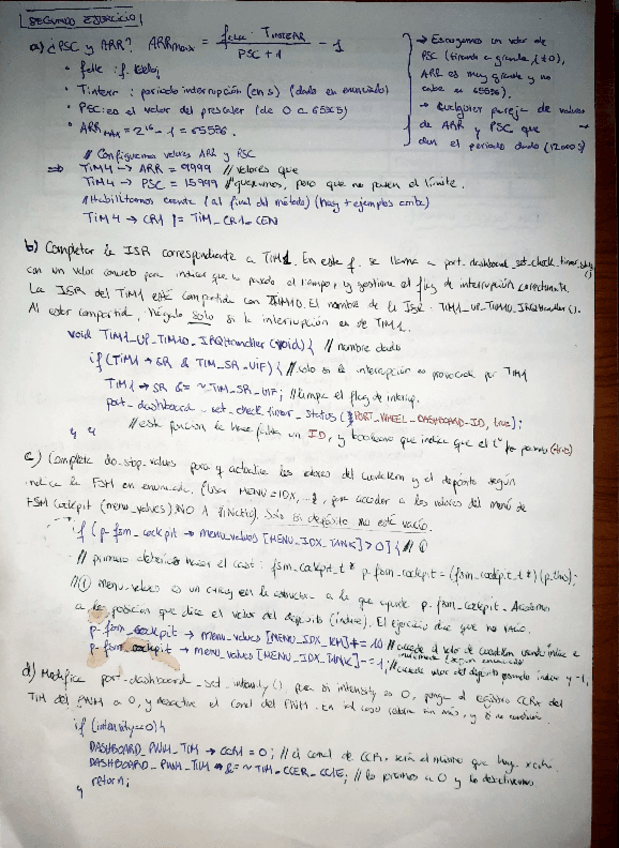 SEGUNDO EJERCICIO
a) ¿PSC y ARR? ARRmax = fclk · Tinterr / PSC + 1 - 1
• fclk : f. reloj
• Tinterr : periodo interrupción (en s) (dado en enunciado)
• PSC: es el valor del prescaler (de 0 a 65535)
• ARR max = 2^16 - 1 = 65536.
→ Escogemos un valor de
PSC (tirando a grande (≠0),
ARR es muy grande y no
cabe en 65536).
→ Cualquier pareja de valores
de ARR y PSC que
den el periodo dado
// Configuramos valores ARR y PSC
⇒ TIM4 → ARR = 9999 // valores que
TIM4 → PSC = 15999 // queramos, pero que no pasen el límite.
// Habilitamos cuenta (al final del método) (hay + ejemplos arriba)
TIM4 → CR1 |= TIM_CR1_CEN
b) Completar la ISR correspondiente a TIM1. En esta f. se llama a port_dashboard_set_check_timer_status()
con un valor concreto para indicar que ha pasado el tiempo, y gestione el flag de interrupción correctamente.
La ISR del TIM1 está compartida con TIM10. El nombre de la ISR: TIM1_UP_TIM10_IRQHandler().
Al estar compartida, hágalo solo si la interrupción es de TIM1.
void TIM1_UP_TIM10_IRQHandler(void){ // nombre dado
if (TIM1 → SR & TIM_SR_UIF){ // solo si la interrupción es provocada por TIM1
TIM1 → SR &= ~TIM_SR_UIF; // limpia el flag de interrup.
port_dashboard_set_check_timer_status(PORT_WHEEL_DASHBOARD_ID, true);
// esta función le hace falta un ID, y booleano que indica que el tº ha pasado (true)
} }
c) Complete do_stop_values para q actualice los valores del cuentakm y el depósito según
indica la FSM en enunciado. (Usar MENU_IDX_.. para acceder a los valores del menú de
FSM Cockpit (menu_values). Sólo si depósito no está vacío.
if (p_fsm_cockpit → menu_values [MENU_IDX_TANK] > 0){ // ①
// primero debería hacer el cast: fsm_cockpit_t* p_fsm_cockpit = (fsm_cockpit_t*)(p_this);
// ① menu_values es un array en la estructura a la que apunta p_fsm_cockpit. Accedemos
a la posición que dice el valor del depósito (índice). El ejercicio dice que no vacío.
p_fsm_cockpit → menu_values [MENU_IDX_KM] += 10 // accede al valor de cuentakm usando índice e
p_fsm_cockpit → menu_values [MENU_IDX_TANK] -= 1; // accede valor del depósito usando índice y -1.
d) Modifica port_dashboard_set_intensity() para si intensity es 0, ponga el registro CCRx del
TIM del PWM a 0, y desactive el canal del PWM. En tal caso
if (intensity==0){
DASHBOARD_PWM_TIM → CCR1 = 0; // el canal de CCR sería el mismo que hay
DASHBOARD_PWM_TIM &= ~TIM_CCER_CC1E; // lo ponemos a 0 y lo desactivamos.
return;
}